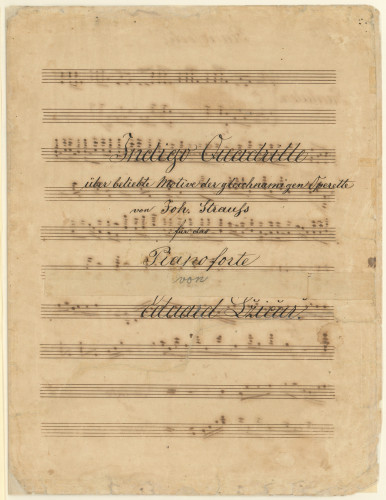 Indigo Quadrille
über beliebte Motive der gleichnamigen Operette
von Joh. Strauss
für das
Pianoforte
von
Eduard